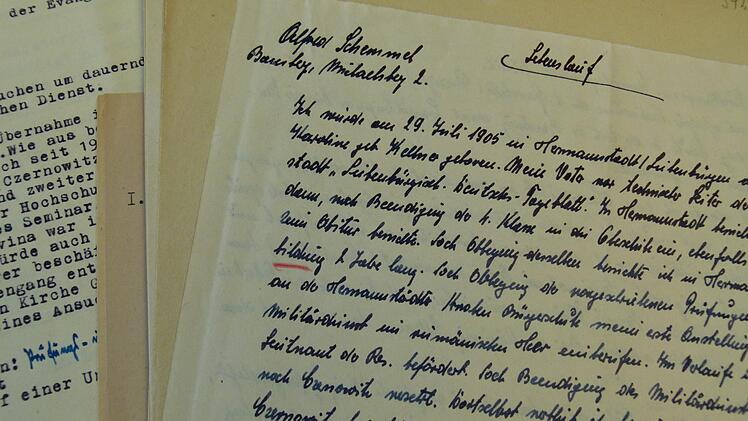 der Evang
uchen um dauernd
hen Dienst.
Übernahme i
.Wie aus be
ch seit 19
Czernowitz
nd zweiter
r Hochschu
es Seminar
vina war i
ürde auch
er beschä
engang ent
n Kirche G
ines Ansuc
n: Prüfungs-
t
f einer Un
I.
Alfred Schemmel
Bamberg, Michaelsberg 2.
Lebenslauf
Ich wurde am 29. Juli 1905 in Hermannstadt/Siebenbürgen a
Karoline geb. Kellner geboren. Mein Vater war technischer Leiter de
stadt „Siebenbürgisch-Deutsches-Tageblatt". In Hermannstadt besucht
dann, nach Beendigung der 4. Klasse in die Oberschule ein, ebenfalls
zum Abitur besuchte. Nach Ablegung desselben besuchte ich in Herman
bildung 2 Jahre lang. Nach Ablegung der vorgeschriebenen Prüfungen
an der Hermannstädter Knaben Bürgerschule meine erste Anstellung
Militärdienst im rumänischen Heer einberufen. Im Verlaufe
Leutnant der Res. befördert. Nach Beendigung des Militärdienst
nach Czernowitz versetzt. Dortselbst
Czernowitz